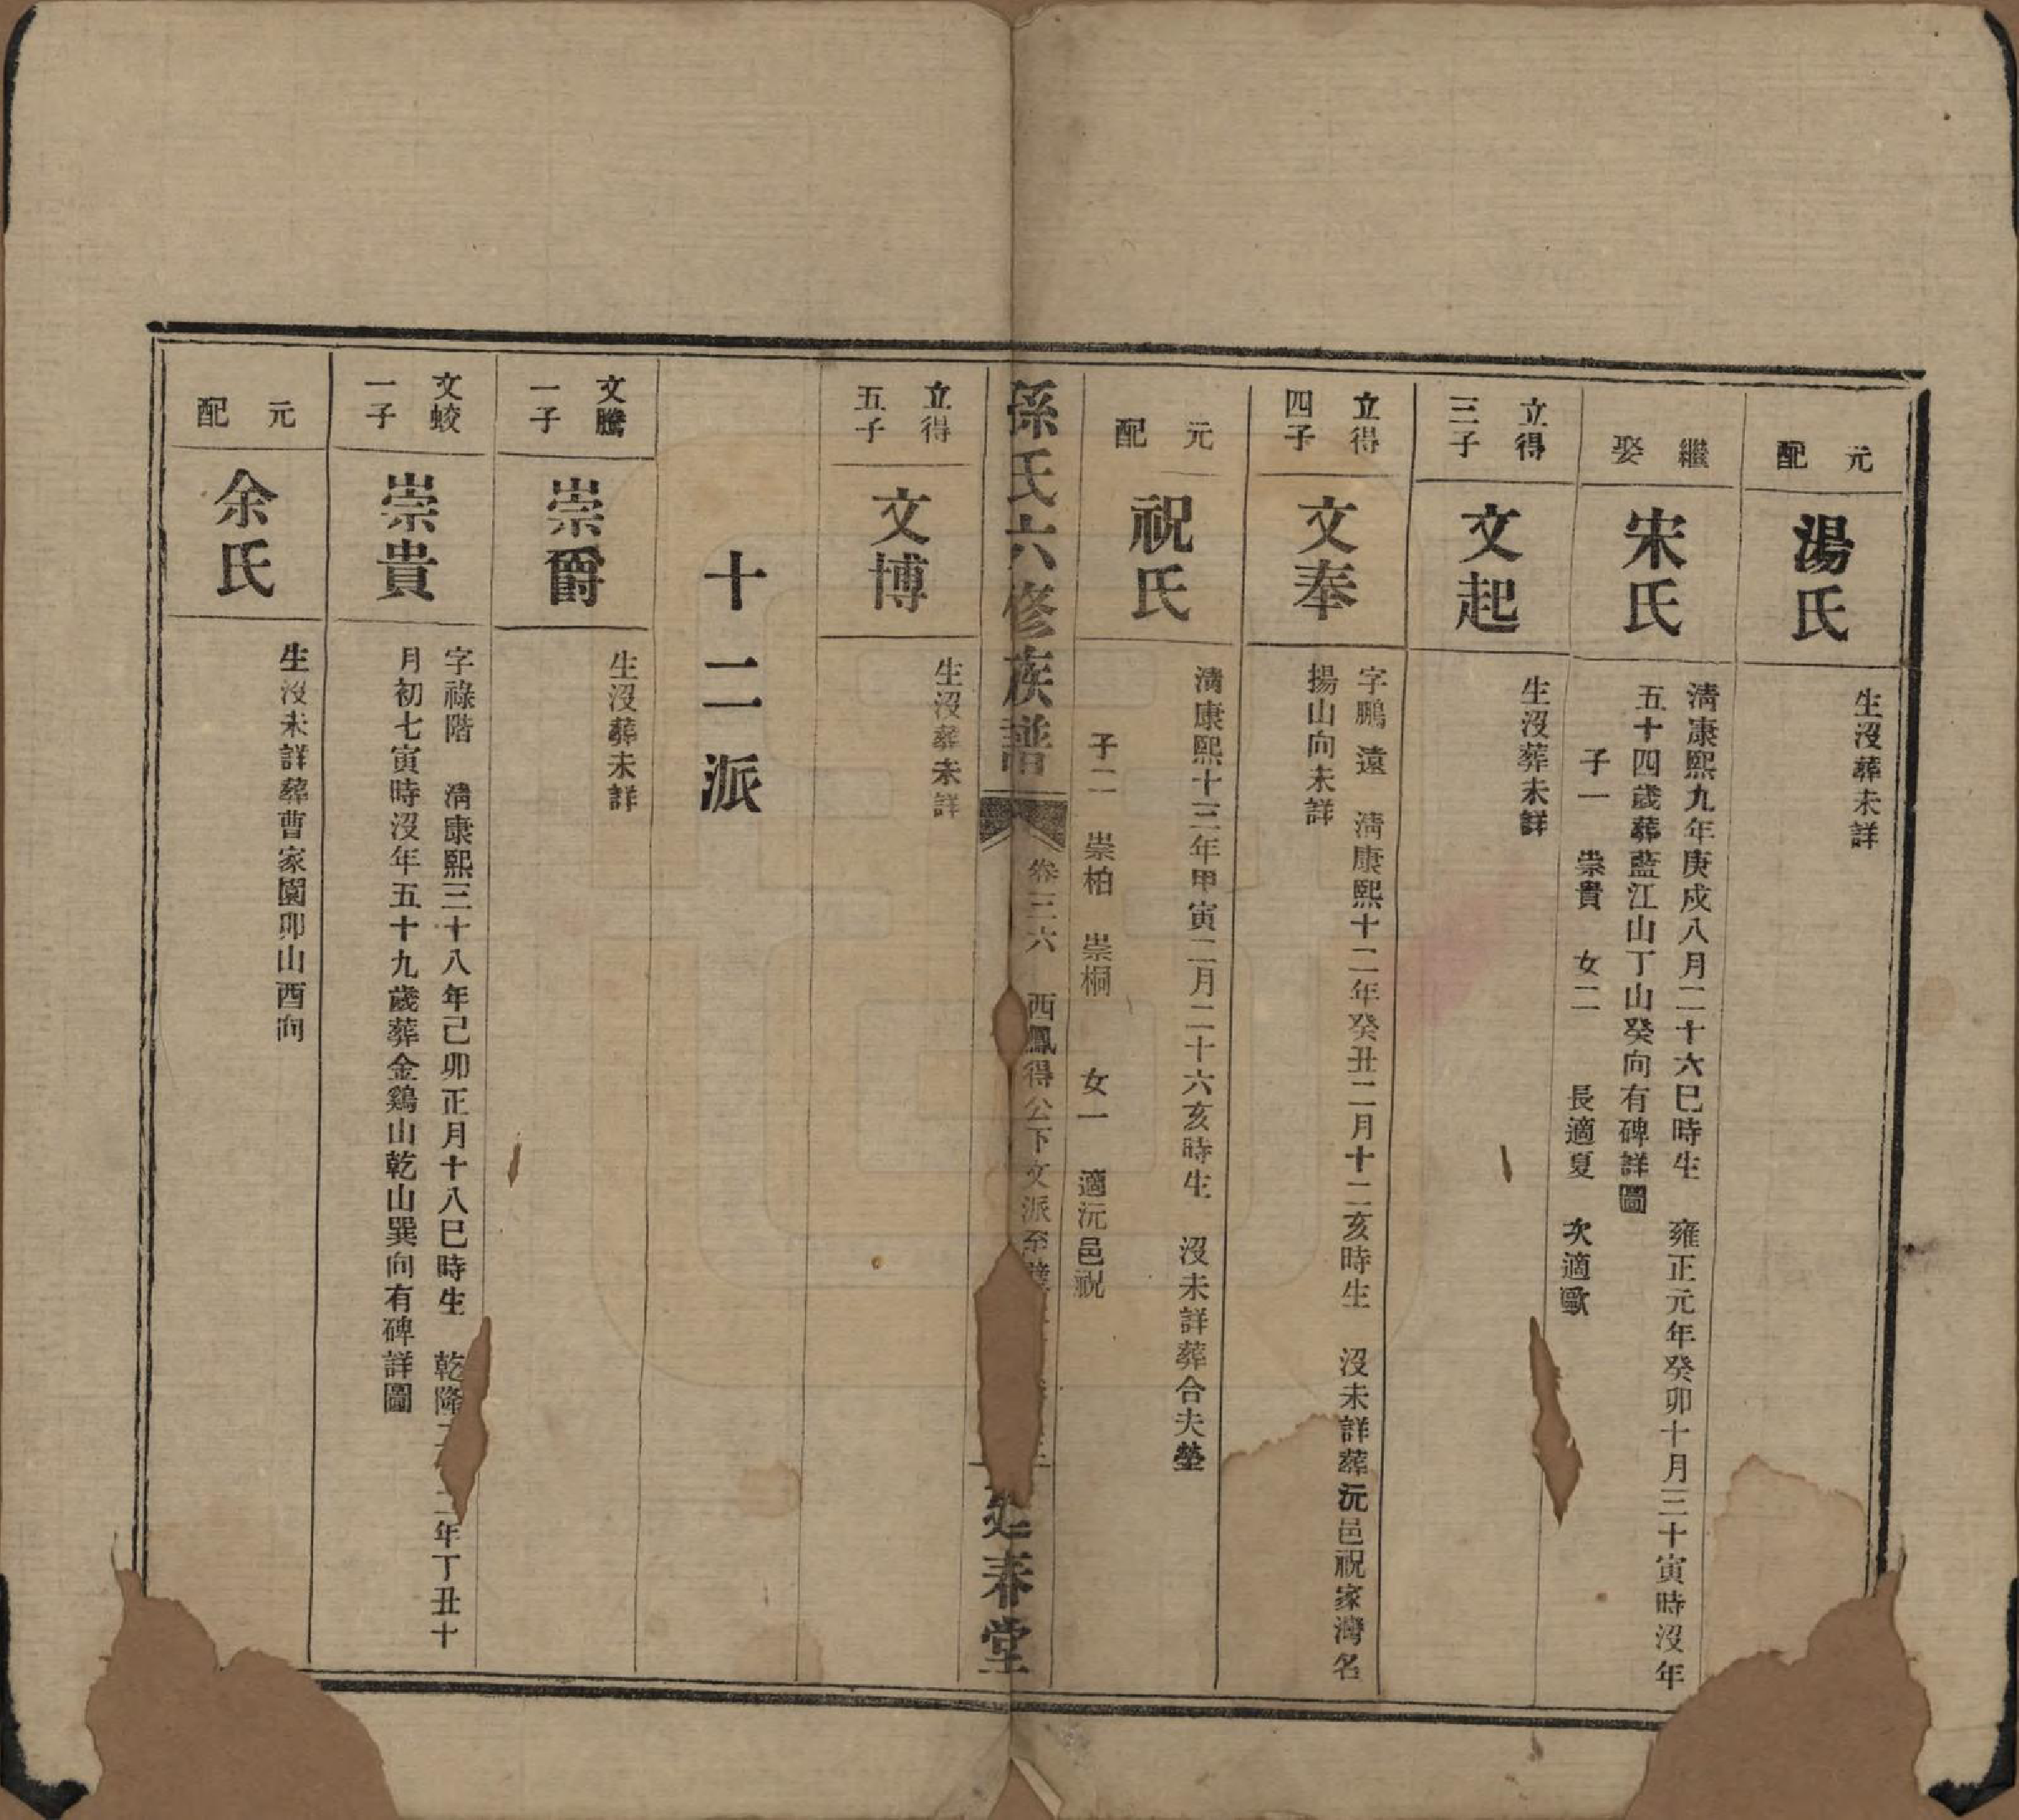 元配
湯氏
生沒葬未詳
繼娶
宋氏
淸康熙九年庚戍八月二十六巳時生 雍正元年癸卯十月三十寅時沒年
五十四歲葬藍江山丁山癸向有碑詳圖
子一 崇貴 女二 長適夏 次適歐
立得三子
文起
生沒葬未詳
立得四子
文奉
字鵬遠 淸康熙十二年癸丑二月十二亥時生 沒未詳葬沅邑祝家灣名
揚山向未詳
元配
祝氏
淸康熙十三年甲寅二月二十六亥時生 沒未詳葬合夫塋
子二 崇柏 崇桐 女一 適沅邑祝
孫氏六修族譜
卷三六 西鳳得公下文派至
春堂
立得五子
文博
生沒葬未詳
十二派
文騰一子
崇爵
生沒葬未詳
文蛟一子
崇貴
字祿階 淸康熙三十八年己卯正月十八巳時生 乾隆 二年丁丑十
月初七寅時沒年五十九歲葬金鷄山乾山巽向有碑詳圖
元配
余氏
生沒未詳葬曹家園卯山酉向